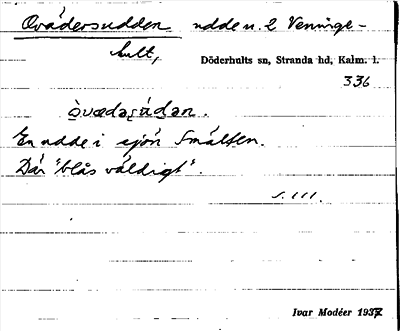 Ovädersudden udde u. 2 Venninge-
hult,
Döderhults sn, Stranda hd, Kalm. l.
336
òvædəʂúdən.
En udde i sjön Smälten.
Där "blås väldigt".
s. 111.
Ivar Modéer 1937